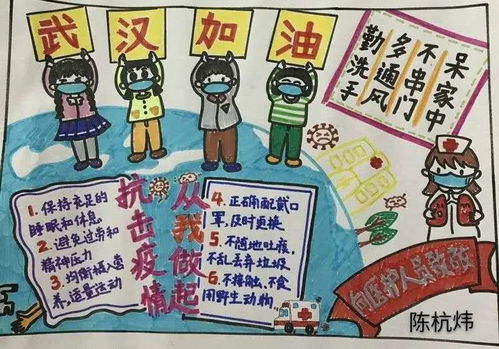 武汉加油
呆家中
不串门
多通风
勤洗手
抗击疫情
从我做起
1. 保持充足的
睡眠和休息
2. 避免过劳和
精神压力
3. 均衡膳食营
养、适量运动
4. 正确配戴口
罩,及时更换
5. 不随地吐痰,
不乱丢弃垃圾
6. 不接触、不食
用野生动物
向医护人员致敬
陈杭炜